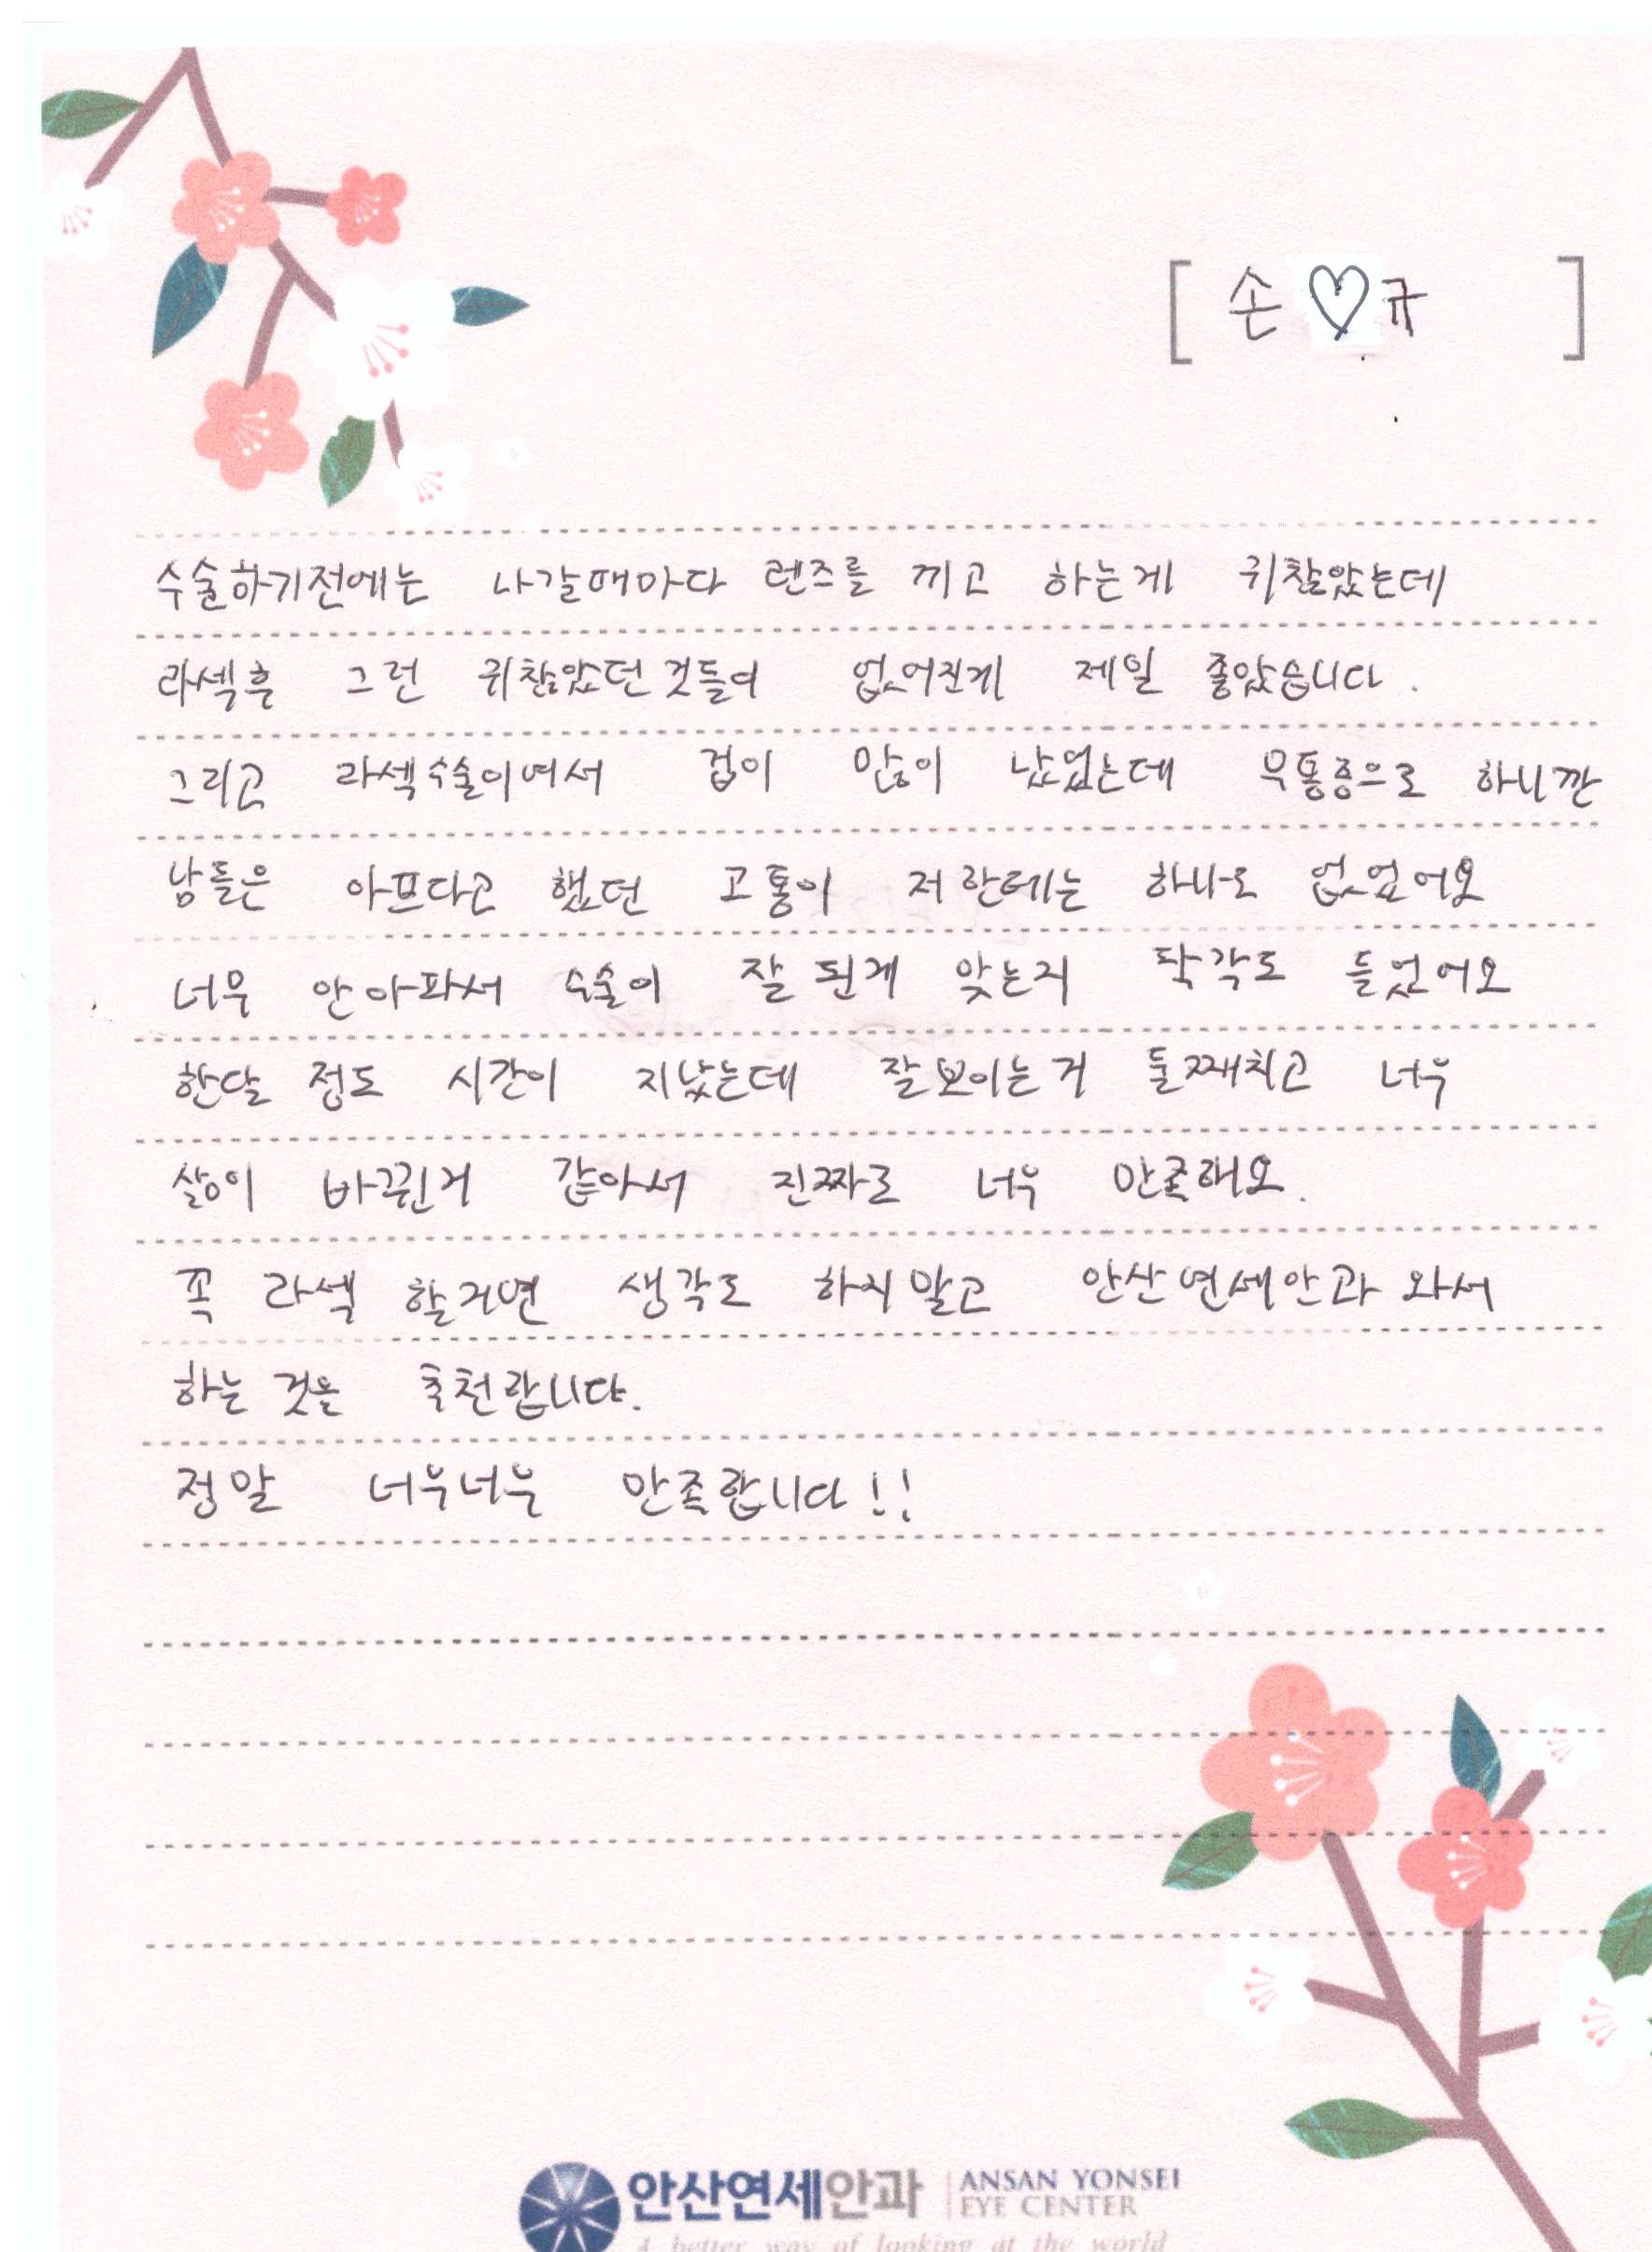 [ 손♡규 ]
수술하기전에는 나갈때마다 렌즈를 끼고 하는게 귀찮았는데
라섹후 그런 귀찮았던 것들이 없어진게 제일 좋았습니다.
그리고 라섹수술이여서 겁이 많이 났었는데 무통증으로 하니깐
남들은 아프다고 했던 고통이 저한테는 하나도 없었어요
너무 안아파서 수술이 잘 된게 맞는지 착각도 들었어요
한달 정도 시간이 지났는데 잘보이는거 둘째치고 너무
삶이 바뀐거 같아서 진짜로 너무 만족해요.
꼭 라섹 할거면 생각도 하지말고 안산연세안과 와서
하는 것을 추천합니다.
정말 너무너무 만족합니다!!
안산연세안과 ANSAN YONSEI
EYE CENTER
A better way of looking at the world